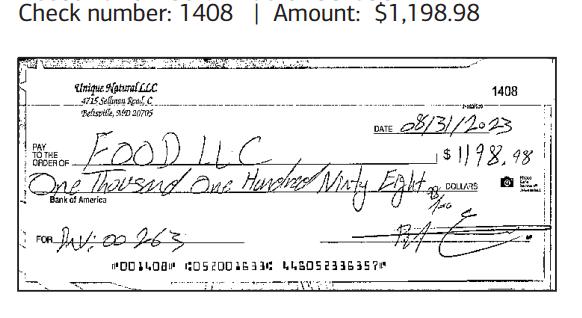 Check number: 1408 | Amount: $1,198.98
Unique Natural LLC
4715 Sellman Road, C
Beltsville, MD 20705
1408
DATE 08/31/2023
PAY TO THE ORDER OF FOOD LLC $ 1198.98
One Thousand One Hundred Ninty Eight 98/100 DOLLARS
Bank of America
FOR INV: 00263
⑈001408⑈ ⑆052001633⑆ 446052336357⑈